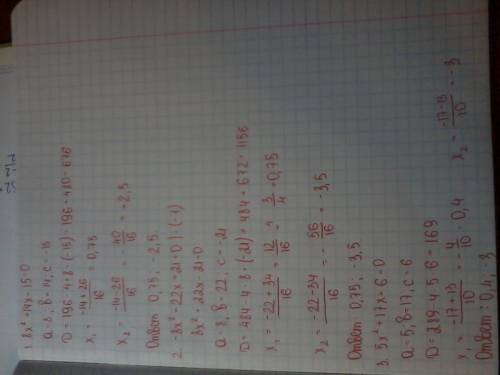 1. 8x²+14x-15=0
a=8, b=14, c=-15
D=196-4·8·(-15)=196+480=676
x₁ = (-14+26)/16 = 0,75
x₂ = (-14-26)/16 = -40/16 = -2,5
Ответ: 0,75; -2,5
2. -8x²-22x+21=0 | :(-1)
8x²+22x-21=0
a=8, b=22, c=-21
D=484-4·8·(-21)=484+672=1156
x₁ = (-22+34)/16 = 12/16 = 3/4 = 0,75
x₂ = (-22-34)/16 = -56/16 = -3,5
Ответ: 0,75; -3,5
3. 5x²+17x+6=0
a=5, b=17, c=6
D=289-4·5·6=169
x₁ = (-17+13)/10 = -4/10 = -0,4 x₂ = (-17-13)/10 = -3
Ответ: -0,4; -3